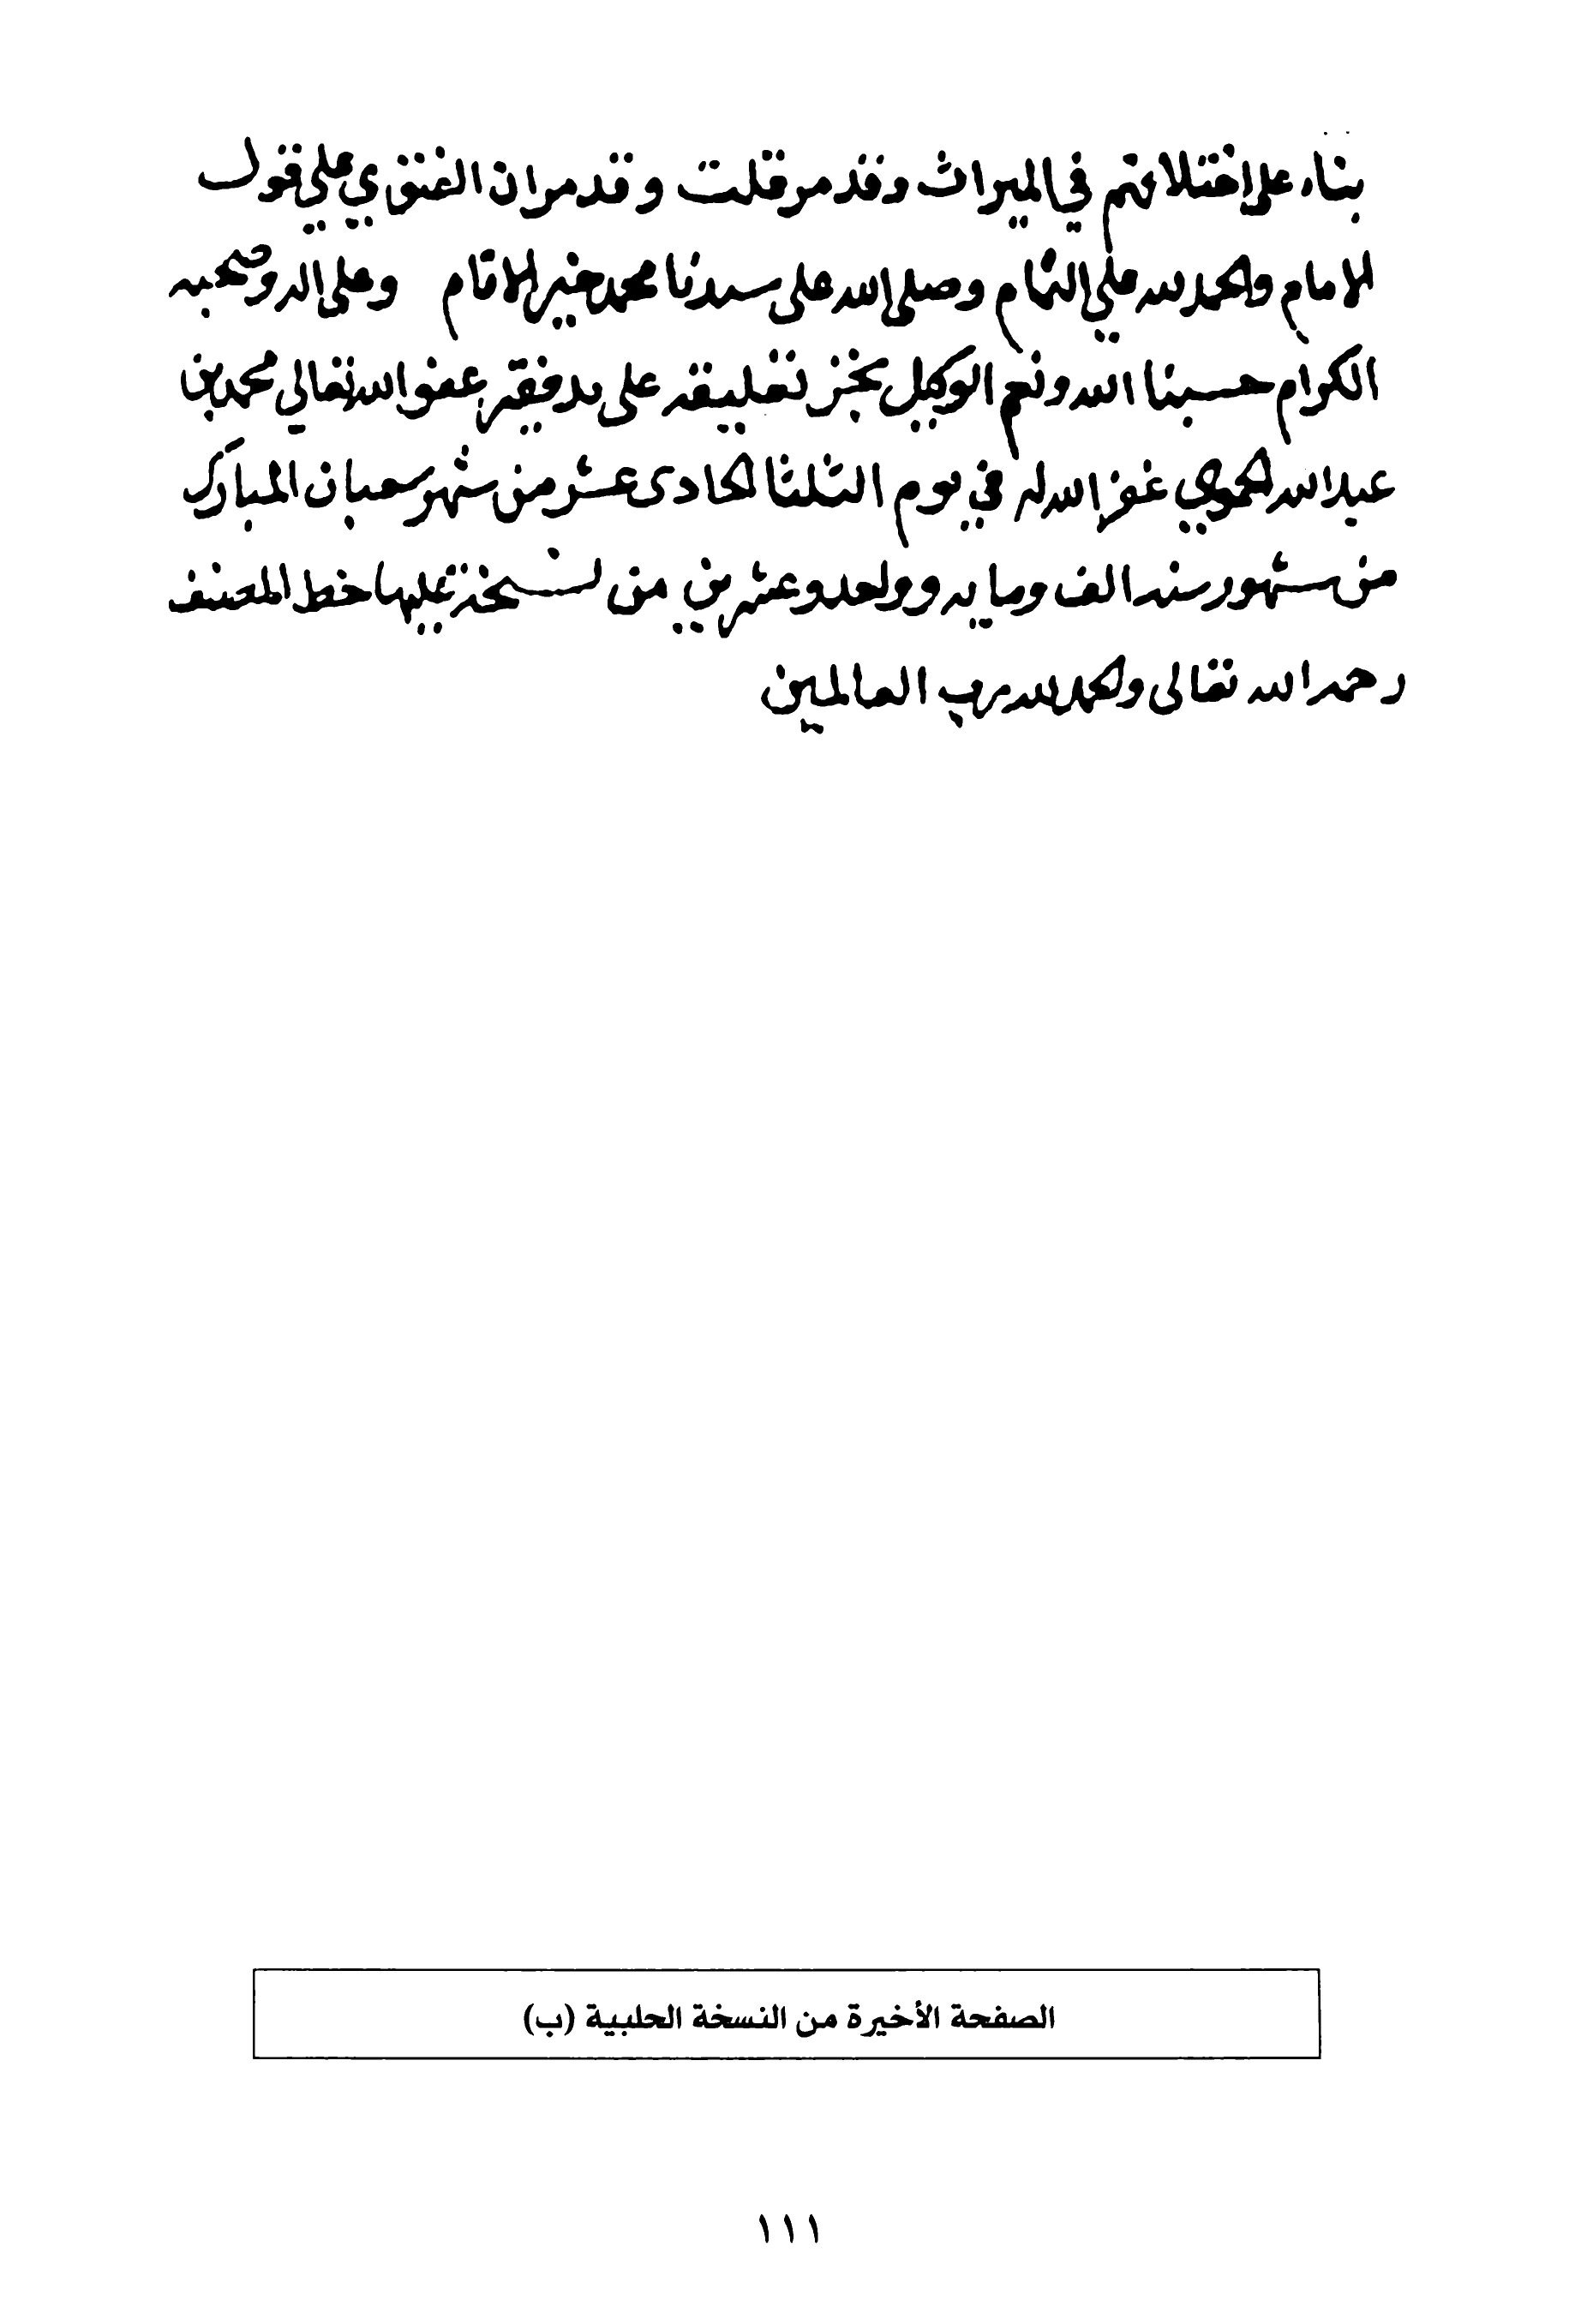 بناء على اختلافهم في الميراث وقد مر قلت وقد مر ان الفتوي علي قول
الامام والحمد لله علي التمام وصلى الله على سيدنا محمد خير الانام وعلى اله وصحبه
الكرام حسبنا الله ونعم الوكيل نجز تعليقه على يد فقير عفو الله تعالي محمد بن
عبد الله الحموي غفر الله له في يوم الثلثا الحادى عشر من شهر شعبان المبارك
من شهور سنه الف ومايه وواحد وعشرين من نسخة عليها خط المصنف
رحمه الله تعالى والحمد لله رب العالمين
الصفحة الأخيرة من النسخة الحلبية (ب)
١١١